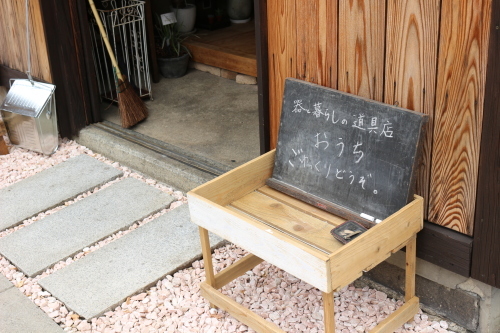 器と暮らしの道具店
おうち
ごゆっくりどうぞ。